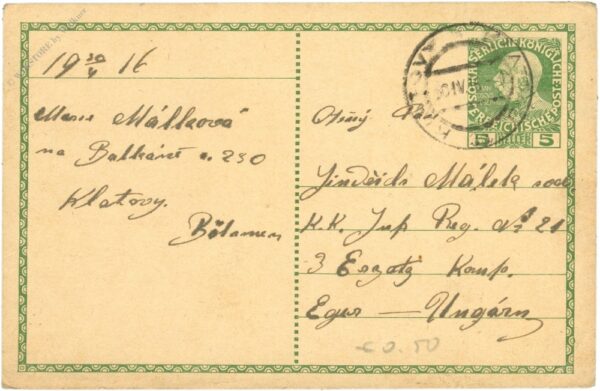 19 30/4 16
Marie Málková
na Balkáně č. 230
Klatovy.
KAISERLICHE KÖNIGLICHE
ÖSTERREICHISCHE POST
5 HELLER 5
KLATOVY
Ctěný Pán
Jindřich Málek
K.K. Inf Reg. No 21
3 Ersatz Komp.
Eger — Ungarn
€ 0.50